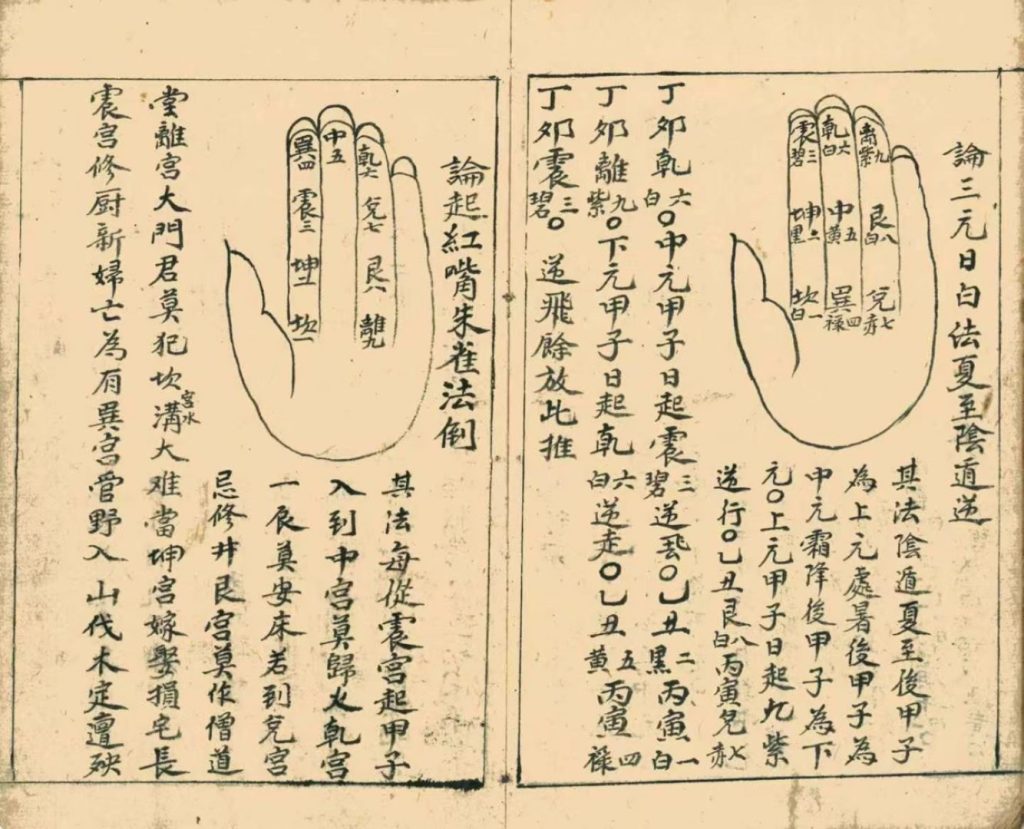 論三元日白法夏至陰遁逆
離九紫
艮八白
兌七赤
乾六白
中五黃
巽四禄
震三碧
坤二黑
坎一白
其法陰遁夏至後甲子
為上元處暑後甲子為
中元霜降後甲子為下
元〇上元甲子日起九紫
逆行〇乙丑艮八白丙寅兌七赤
丁卯乾六白〇中元甲子日起震三碧逆飛〇乙丑二黑丙寅一白
丁卯離九紫〇下元甲子日起乾六白逆走〇乙丑五黃丙寅四禄
丁卯震三碧〇逆飛餘放此推
論起紅嘴朱雀法倒
乾六
兌七
艮八
離九
中五
巽四
震三
坤二
坎一
其法每從震宮起甲子
入到中宮莫歸火乾宮
一良莫安床若到兌宮
忌修井艮宮莫作僧道
堂離宮大門君莫犯坎宮水溝大难當坤宮嫁娶損宅長
震宮修厨新婦亡為有巽宮營野入山伐木定遭殃